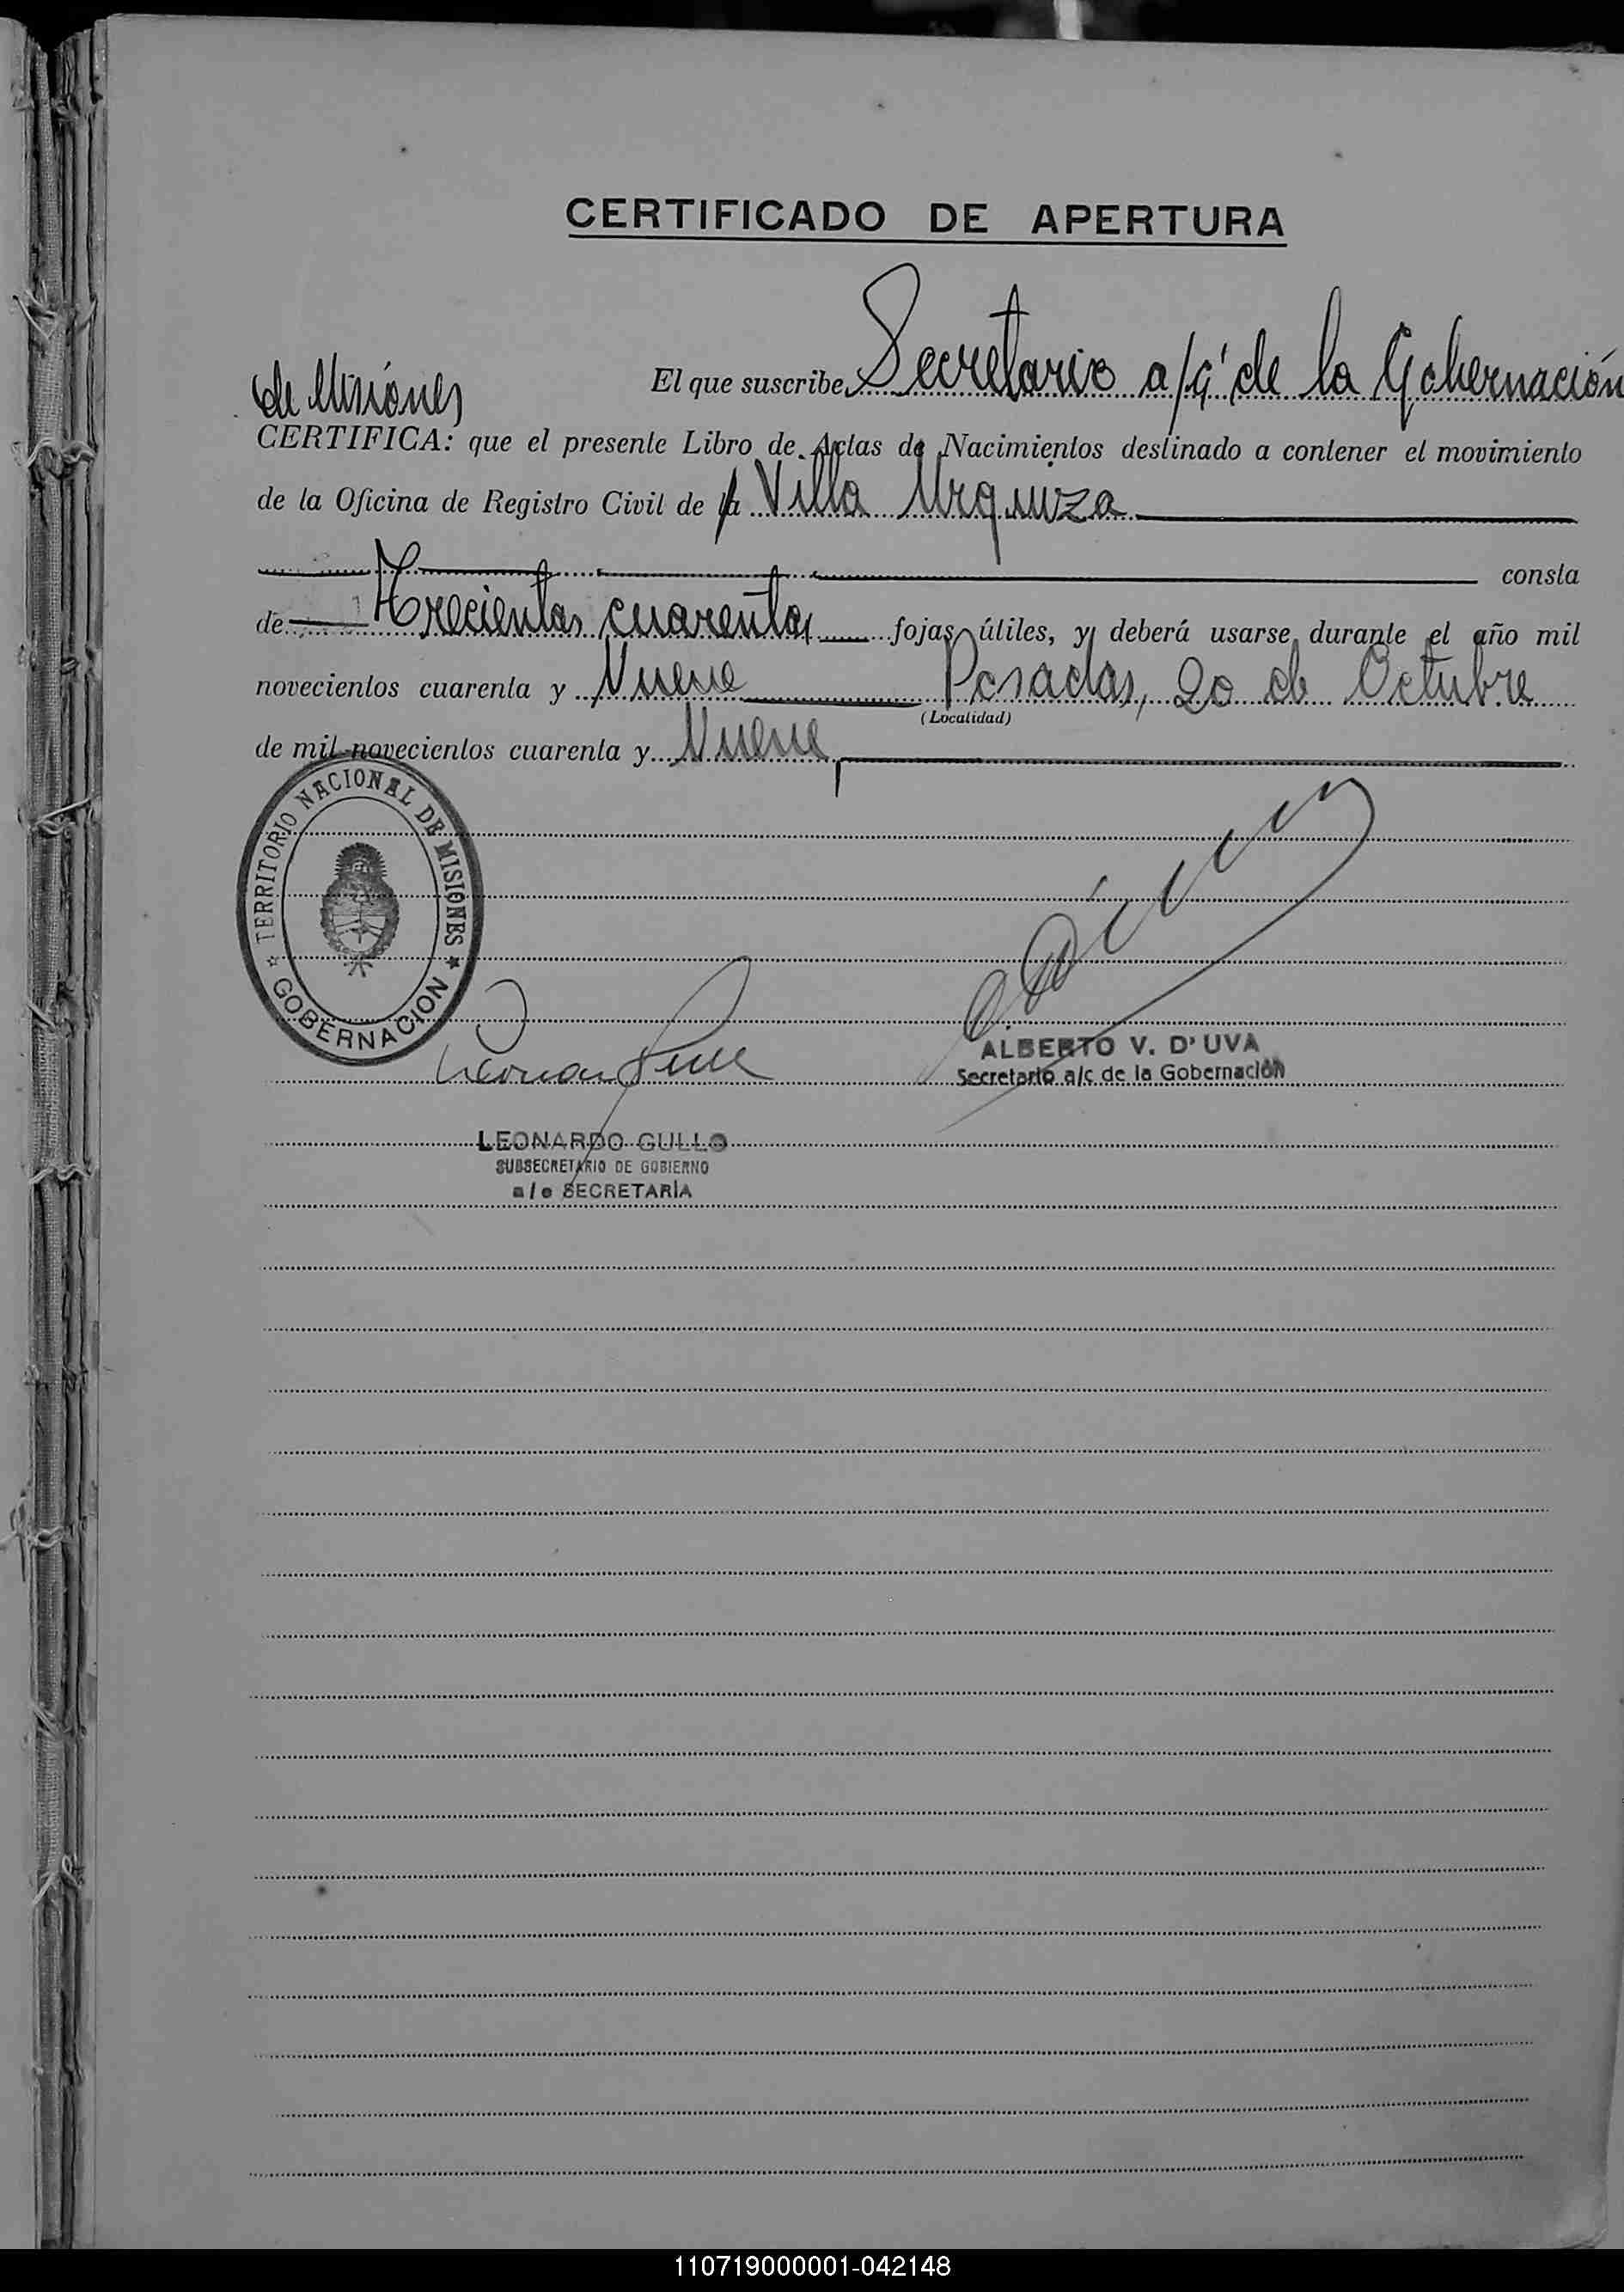 CERTIFICADO DE APERTURA
El que suscribe Secretario a/c de la Gobernación
de Misiones
CERTIFICA: que el presente Libro de Actas de Nacimientos destinado a contener el movimiento
de la Oficina de Registro Civil de la Villa Urquiza
consta
de Trecientas cuarenta fojas útiles, y deberá usarse durante el año mil
novecientos cuarenta y Nueve Posadas, 20 de Octubre
(Localidad)
de mil novecientos cuarenta y Nueve
TERRITORIO NACIONAL DE MISIONES
GOBERNACION
ALBERTO V. D'UVA
Secretario a/c de la Gobernación
LEONARDO GULLO
SUBSECRETARIO DE GOBIERNO
a/c SECRETARÍA
110719000001-042148